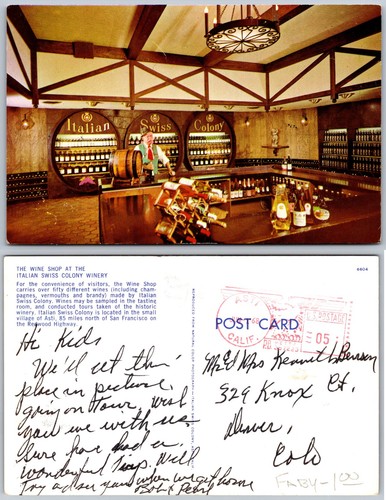 Italian Swiss Colony
THE WINE SHOP AT THE
ITALIAN SWISS COLONY WINERY
For the convenience of visitors, the Wine Shop
carries over fifty different wines (including cham-
pagnes, vermouths and brandy) made by Italian
Swiss Colony. Wines may be sampled in the tasting
room, and conducted tours taken of the historic
winery. Italian Swiss Colony is located in the small
village of Asti, 85 miles north of San Francisco on
the Redwood Highway.
Hi Kids
We'll at the
place in picture,
going on tour. Wish
you we with us
Sure have had a
wonderful trip. Will
try a d see you when we get home
Pearl
POST CARD
ASTI
CALIF.
U.S. POSTAGE
05
Mr & Mrs Kenneth Benson
329 Knox Ct.
Denver,
Colo
FABY-1.00